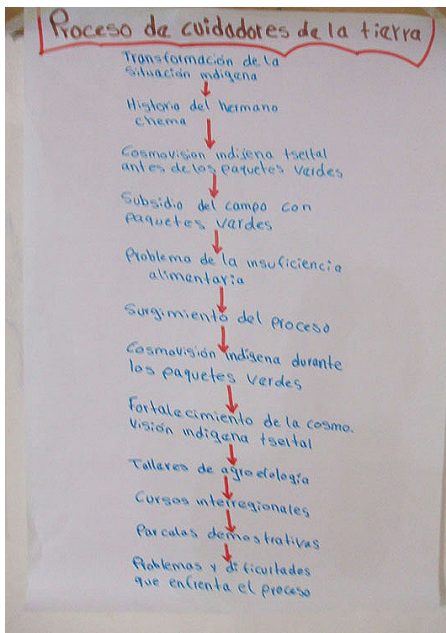 Proceso de cuidadores de la tierra
Transformación de la
situación indigena
Historia del hermano
chema
Cosmovision indijena tseltal
antes de los paquetes verdes
Subsidio del campo con
paquetes verdes
Problema de la insuficiencia
alimentaria
Surgimiento del proceso
Cosmovisión indigena durante
los paquetes verdes
Fortalecimiento de la cosmo.
visión indigena tseltal
Talleres de agroecología
Cursos interregionales
Parcelas demostrativas
Problemas y dificultades
que enfrenta el proceso